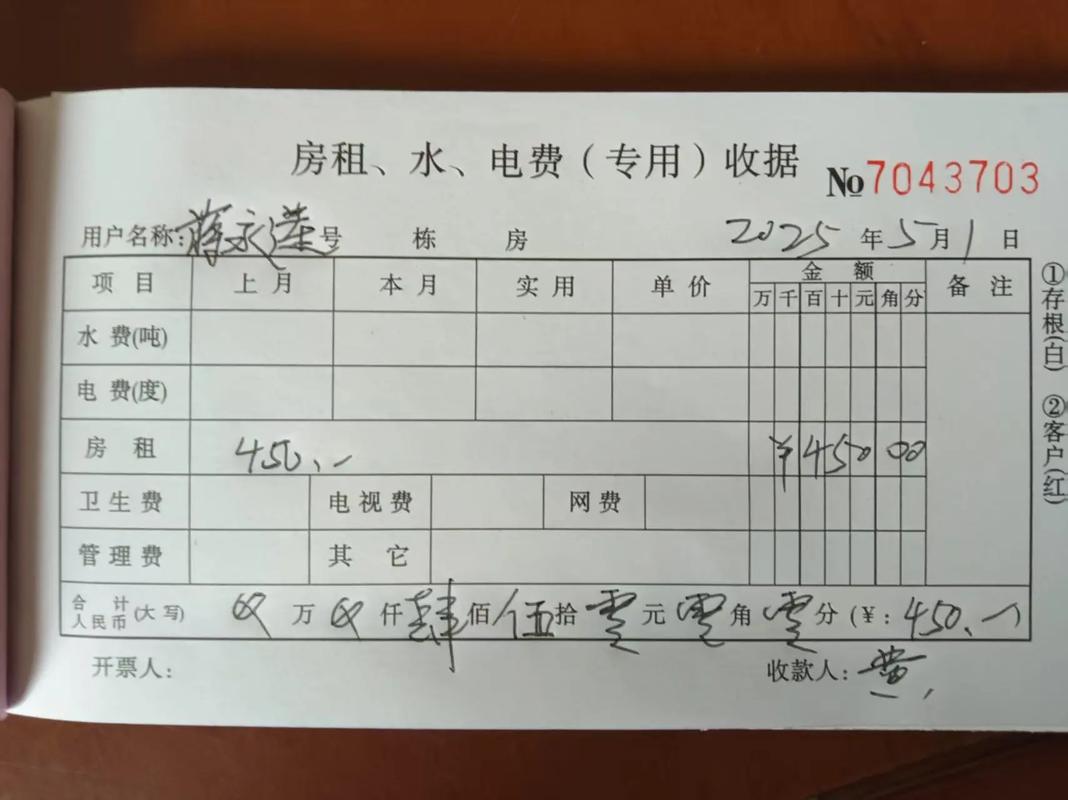 房租、水、电费（专用）收据
№7043703
用户名称：蒋永莲号 栋 房 2025年5月1日
项目 上月 本月 实用 单价 金额 备注
万 千 百 十 元 角 分
水费(吨)
电费(度)
房租 450.- ¥45000
卫生费 电视费 网费
管理费 其它
合计人民币(大写) 万 仟肆佰伍拾零元零角零分(¥：450.-
开票人： 收款人：黄
①存根(白) ②客户(红)